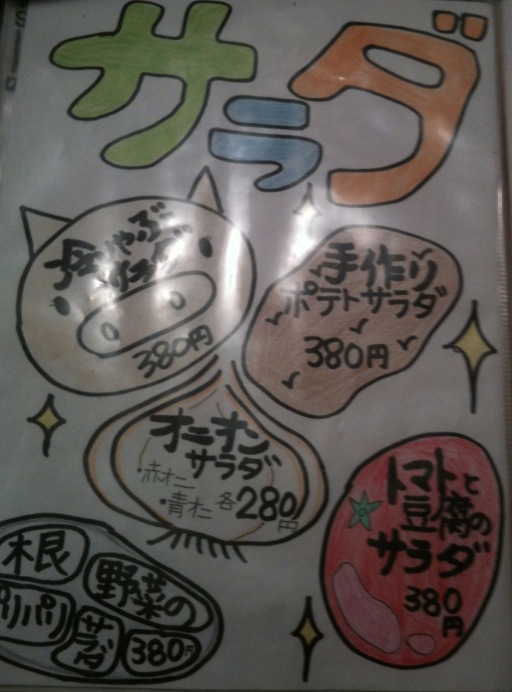 サラダ
冷しゃぶ
サラダ
380円
手作り
ポテトサラダ
380円
オニオン
サラダ
・赤オニ
・青オニ
各280円
トマトと
豆腐の
サラダ
380
円
大根
野菜の
パリパリ
サラダ
380円